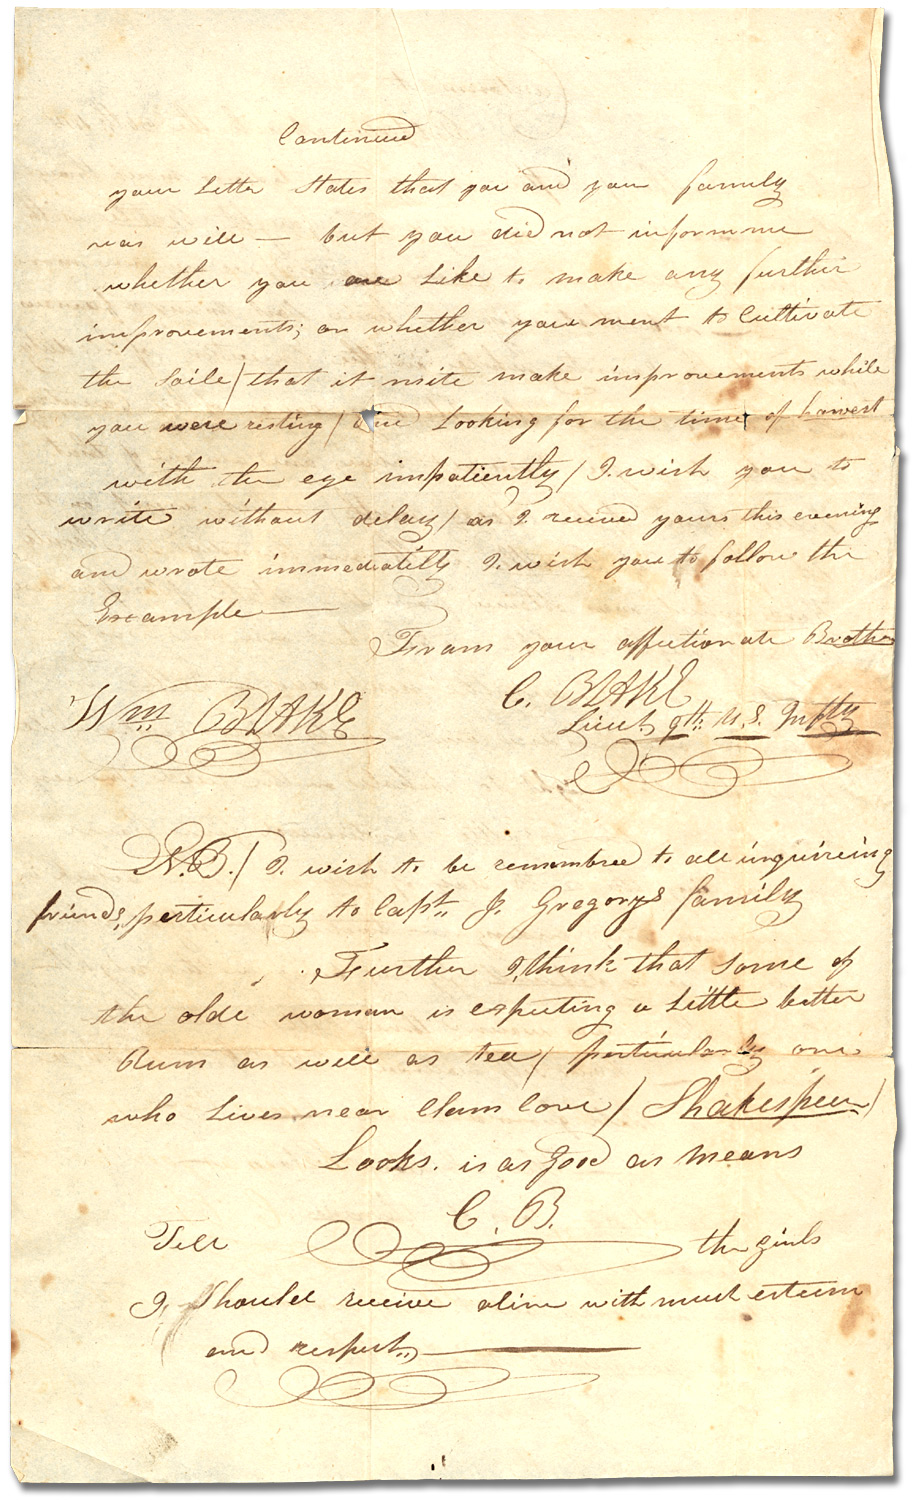 Continued
your Letter States that you and you family
was well — but you did not inform me
whether you are Like to make any further
improvements; or whether you ment to Cultivate
the Soile / that it mite make improvements while
you were resting / and Looking for the time of harvest
with the eye impatiently / I wish you to
write without delay / as I received yours this evening
and wrote immediatilty I wish you to follow the
Example —
From your affectionate Brother
Wm BLAKE
C. BLAKE
Lieut. 9th U.S. Infty
N.B. / I wish to be remembred to all inquireing
friends, perticularly to Capt. J. Gregorys family
Further I think that some of
the olde woman is expecting a Little better
Rum as well as tea / perticularly one
who Lives near Clam Cove / Shakespear /
Looks. is as Good as means
C. B.
Tell the girls
I Should receive a line with much esteem
and respect, —